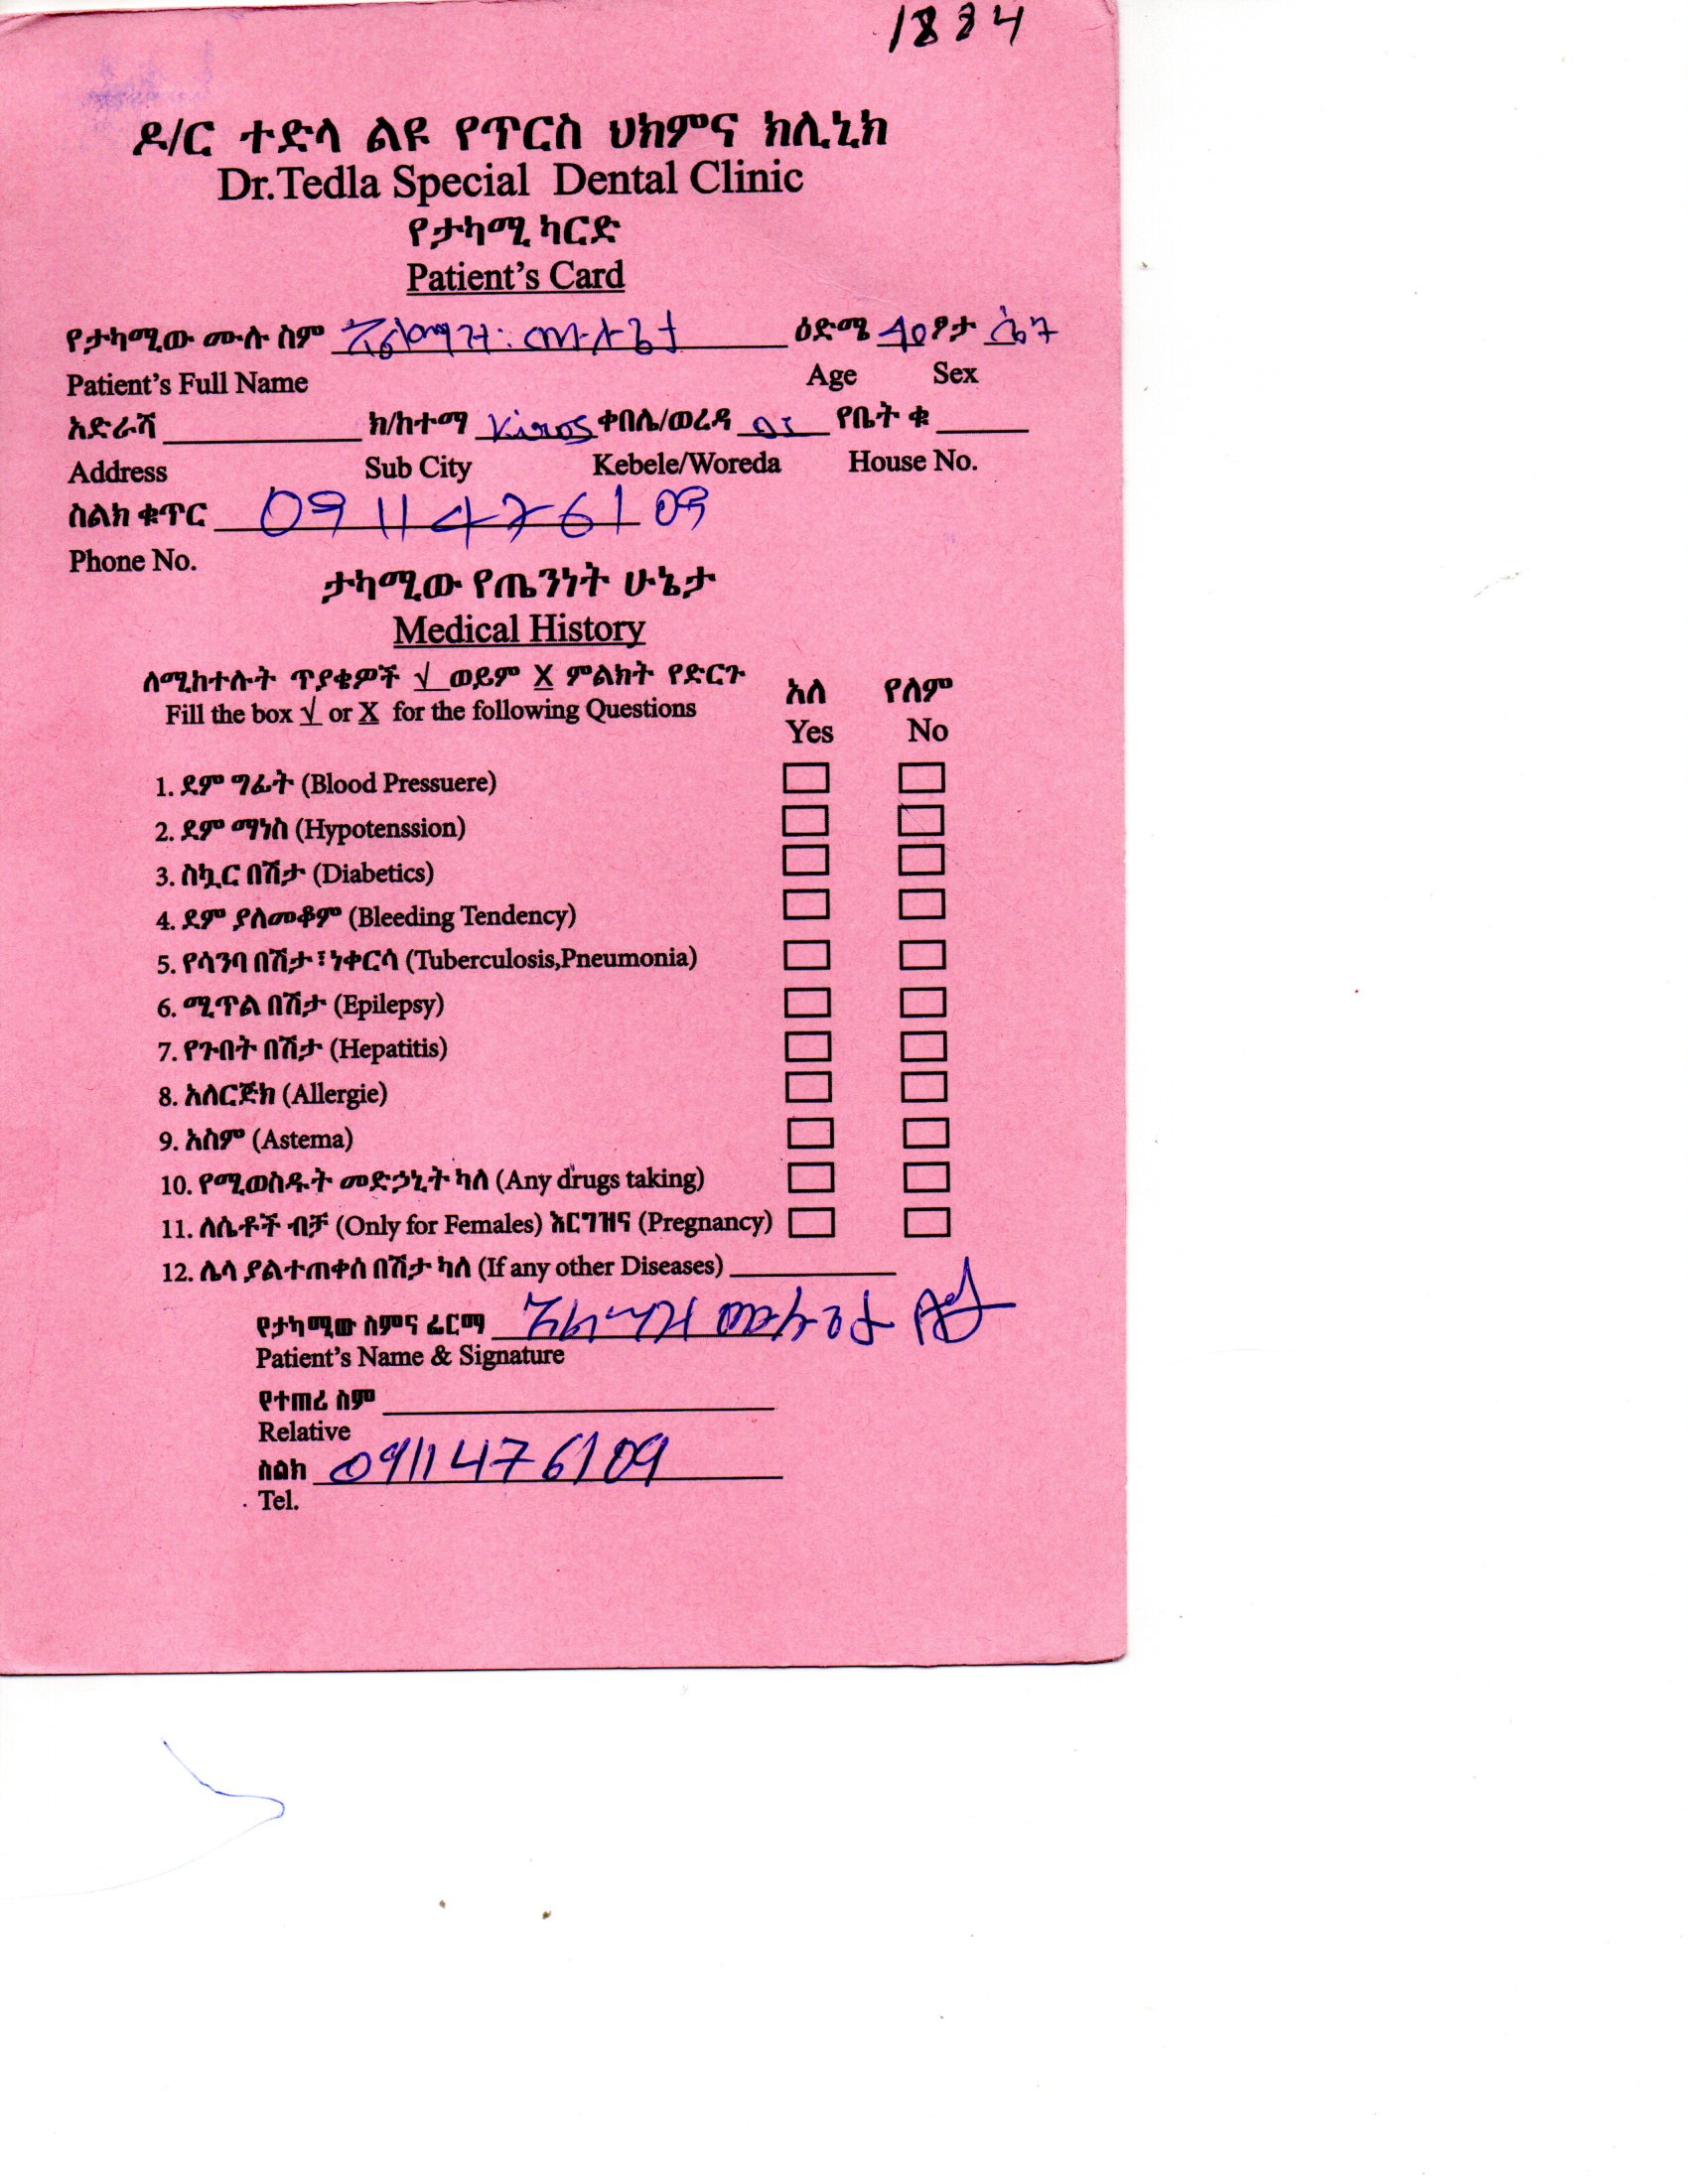 1884
ዶ/ር ተድላ ልዩ የጥርስ ህክምና ክሊኒክ
Dr.Tedla Special Dental Clinic
የታካሚ ካርድ
Patient's Card
የታካሚው ሙሉ ስም ዕድሜ 40 ፆታ ሴት
Patient's Full Name Age Sex
አድራሻ ክ/ከተማ Kiros ቀበሌ/ወረዳ 01 የቤት ቁ
Address Sub City Kebele/Woreda House No.
ስልክ ቁጥር 0911476109
Phone No.
ታካሚው የጤንነት ሁኔታ
Medical History
ለሚከተሉት ጥያቄዎች √ ወይም X ምልክት የድርጉ
Fill the box √ or X for the following Questions
አለ የለም
Yes No
1. ደም ግፊት (Blood Pressuere)
2. ደም ማነስ (Hypotenssion)
3. ስኳር በሽታ (Diabetics)
4. ደም ያለመቆም (Bleeding Tendency)
5. የሳንባ በሽታ፣ነቀርሳ (Tuberculosis,Pneumonia)
6. ሚጥል በሽታ (Epilepsy)
7. የጉበት በሽታ (Hepatitis)
8. አለርጅክ (Allergie)
9. አስም (Astema)
10. የሚወስዱት መድኃኒት ካለ (Any drugs taking)
11. ለሴቶች ብቻ (Only for Females) እርግዝና (Pregnancy)
12. ሌላ ያልተጠቀሰ በሽታ ካለ (If any other Diseases)
የታካሚው ስምና ፊርማ
Patient's Name & Signature
የተጠሪ ስም
Relative
ስልክ 0911476109
Tel.